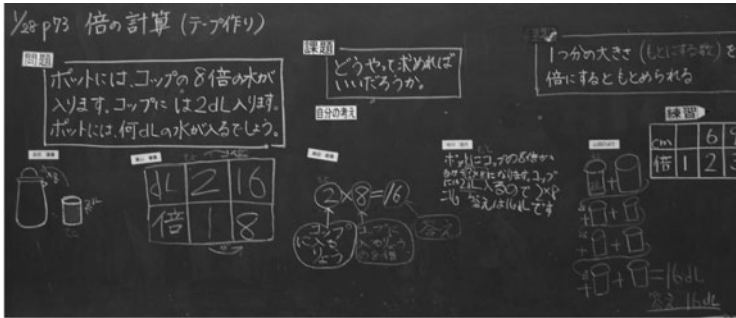 1/28 p73 倍の計算 (テープ作り)
問題
ポットには、コップの8倍の水が
入ります。コップには2dL入ります。
ポットには、何dLの水が入るでしょう。
課題
どうやって求めれば
いいだろうか。
自分の考え
1つ分の大きさ (もとにする数) を
倍にするともとめられる
練習
cm 6
倍 1 2
×8
dL 2 16
倍 1 8
2×8=16
コップ
に入る
りょう
コップに
入るりょう
の8倍
答え
ポットにコップの8倍の
コップ
には2dL入るので2×8
=16 答えは16dLです
+
+
+
+ =16dL
答え 16dL